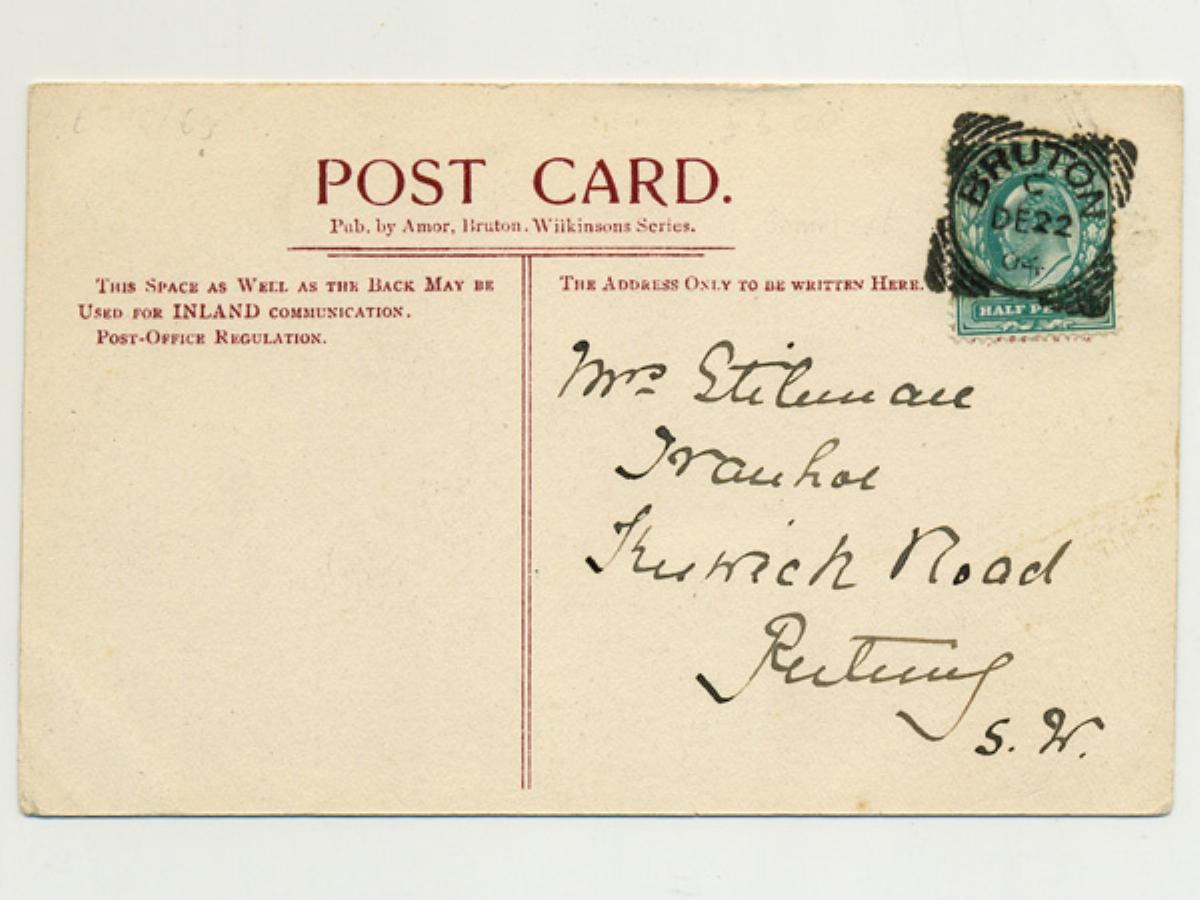 POST CARD.
Pub. by Amor, Bruton. Wilkinsons Series.
THIS SPACE AS WELL AS THE BACK MAY BE
USED FOR INLAND COMMUNICATION.
POST-OFFICE REGULATION.
THE ADDRESS ONLY TO BE WRITTEN HERE.
BRUTON
C
DE 22
04
HALF PE
Mrs Stileman
Ivanhoe
Keswick Road
Putney
S. W.